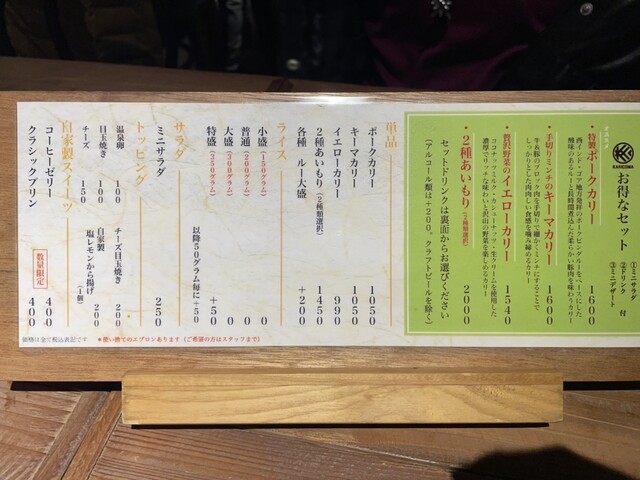 KARICOMA
オススメ
お得なセット
①ミニサラダ
②ドリンク 付
③ミニデザート
・特製ポークカリー 1600
西インド・ゴア地方発祥のポークビンダルーをベースにした
酸味のあるルーと長時間煮込んだ柔らかい豚肉を味わうカリー
・手切りミンチのキーマカリー 1600
牛&豚のブロック肉を手切りで細かくミンチにすることで
しっかりとした肉肉しい食感を噛み締めるカリー
・贅沢野菜のイエローカリー 1540
ココナッツミルク・カシューナッツ・生クリームを使用した
濃厚でリッチな味わいと沢山の野菜を楽しめるカリー
・2種あいもり(2種類選択) 2000
セットドリンクは裏面からお選びください
(アルコール類は+200。クラフトビールを除く)
単品
ポークカリー 1050
キーマカリー 1050
イエローカリー 990
2種あいもり(2種類選択) 1450
各種 ルー大盛 +200
ライス
小盛(150グラム) 0
普通(200グラム) 0
大盛(300グラム) 0
特盛(350グラム) +50
以降50グラム毎に+50
サラダ
ミニサラダ 250
トッピング
温泉卵 100
目玉焼き 100
チーズ 150
チーズ目玉焼き 200
自家製
塩レモンから揚げ(1個) 200
自家製スイーツ
コーヒーゼリー 400
クラシックプリン 400
数量限定
価格は全て税込表記です
*使い捨てのエプロンあります(ご希望の方はスタッフまで)